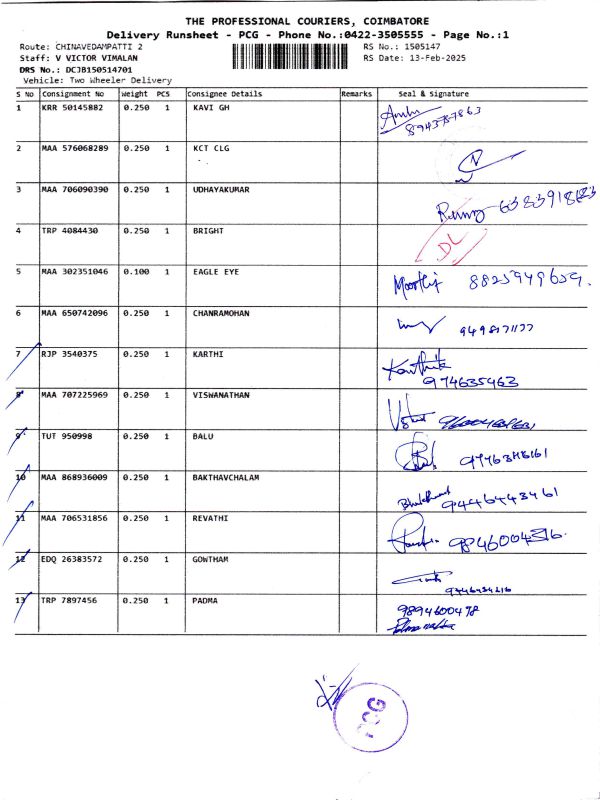 THE PROFESSIONAL COURIERS, COIMBATORE
Delivery Runsheet - PCG - Phone No.:0422-3505555 - Page No.:1
Route: CHINAVEDAMPATTI 2 RS No.: 1505147
Staff: V VICTOR VIMALAN RS Date: 13-Feb-2025
DRS No.: DCJB150514701
Vehicle: Two Wheeler Delivery
S No Consignment No Weight PCS Consignee Details Remarks Seal & Signature
1 KRR 50145882 0.250 1 KAVI GH
2 MAA 576068289 0.250 1 KCT CLG
3 MAA 706090390 0.250 1 UDHAYAKUMAR
4 TRP 4084430 0.250 1 BRIGHT DL
5 MAA 302351046 0.100 1 EAGLE EYE
6 MAA 650742096 0.250 1 CHANRAMOHAN
7 RJP 3540375 0.250 1 KARTHI Karthik
974635463
8 MAA 707225969 0.250 1 VISWANATHAN
9 TUT 950998 0.250 1 BALU
10 MAA 868936009 0.250 1 BAKTHAVCHALAM 9446443461
11 MAA 706531856 0.250 1 REVATHI
12 EDQ 26383572 0.250 1 GOWTHAM
13 TRP 7897456 0.250 1 PADMA 9894600498
PCG